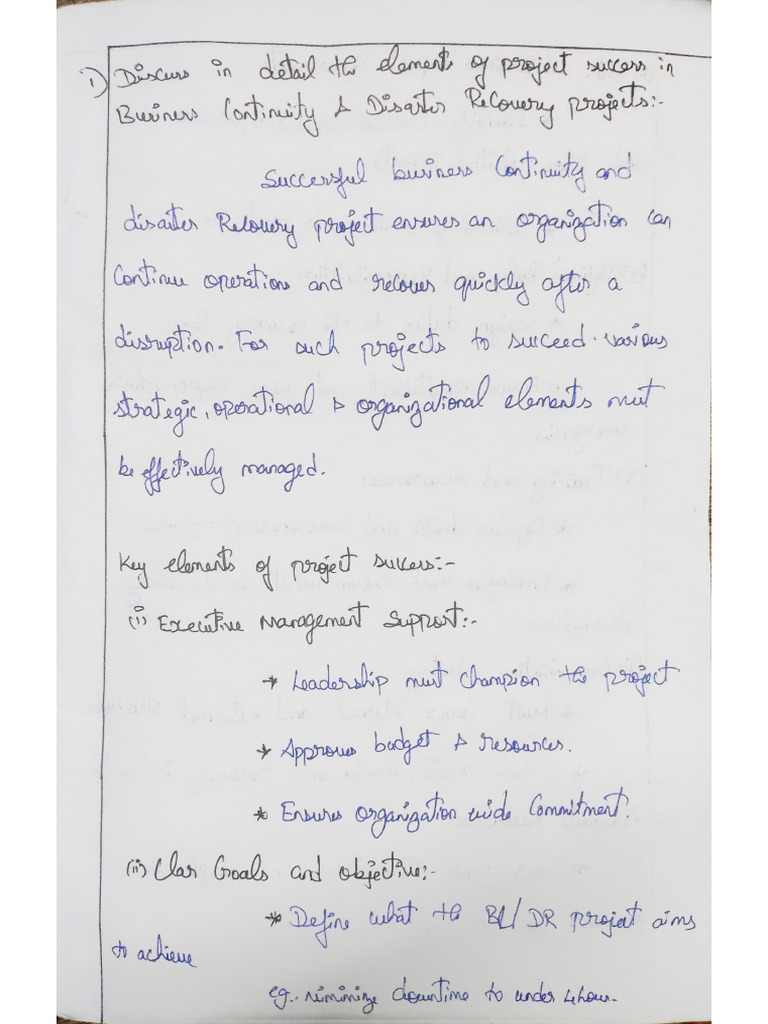 1) Discuss in detail the elements of project success in
Business Continuity & Disaster Recovery projects:-
Successful business Continuity and
disaster Recovery project ensures an organization can
Continue operation and recover quickly after a
disruption. For such projects to succeed. various
strategic, operational & organizational elements must
be effectively managed.
Key elements of project success:-
(i) Executive Management Support:-
* Leadership must champion the project
* Approves budget & resources.
* Ensures organization wide Commitment.
(ii) Clar Goals and objective:-
* Define what the BC/DR project aims
to achieve
eg.. minimize downtime to under 4 hour.